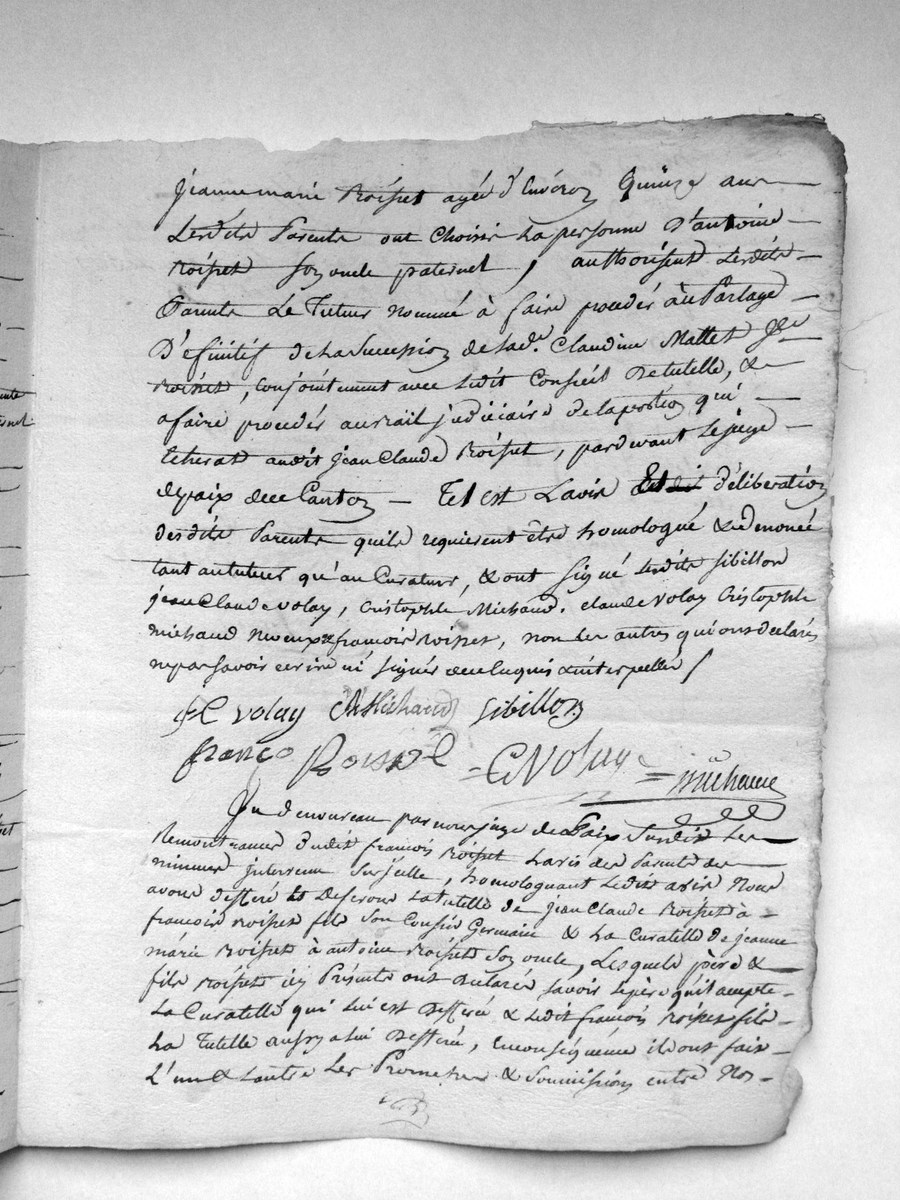 jeanne marie Roisset agée d'Environ Quinze ans
Lesdits Parents ont Choisis La personne D'antoine
Roisset son oncle paternel, authorisent Lesdits
Parents Le Tuteur nommé à faire procéder au Partage
D'éfinitif de La Succession de lad.e Claudine Mallet f.e
Roisset, Conjointement avec Ledit Conseil De tutelle, &
a faire procéder au Bail judiciaire de la portion qui
echerat audit jean Claude Roisset, pardevant Le juge
de paix de ce Canton – Tel est L'avis Et déliberation
desdits Parents qu'ils requierent être homologué & denoncé
tant au tuteur qu'au Curateur, & ont signé Lesdits Sibillon
jean Claude volay, Cristophle Michaud, claude volay Cristophle
michaud neveux & francois Roisset, non Les autres qui ont declarés
ne pas savoir ecrire ni signer de ce Enquis & interpellés /
JC volay CMichaud Sibillon
franço Roisset CVolay michaud
Et de nouveau par nous juge de Paix Susdit Les
Remontrances dudit francois Roisset L'avis des Parents des
mineurs intervenu Sur icelle, homologuant Ledit avis Nous
avons defferé & Defferons La tutelle de jean Claude Roisset à
francois Roisset fils Son Cousin Germain & La Curatelle de jeanne
marie Roisset à antoine Roisset Son oncle, Lesquels père &
fils Roisset icy Présents ont declarés savoir Le père qu'il accepte
La Curatelle qui Lui est Defferée & Ledit francois Roisset fils
La Tutelle aussy a lui Defferée, en conséquence ils ont fait
L'un & L'autre Les Promesses & Soumissions entre Nos